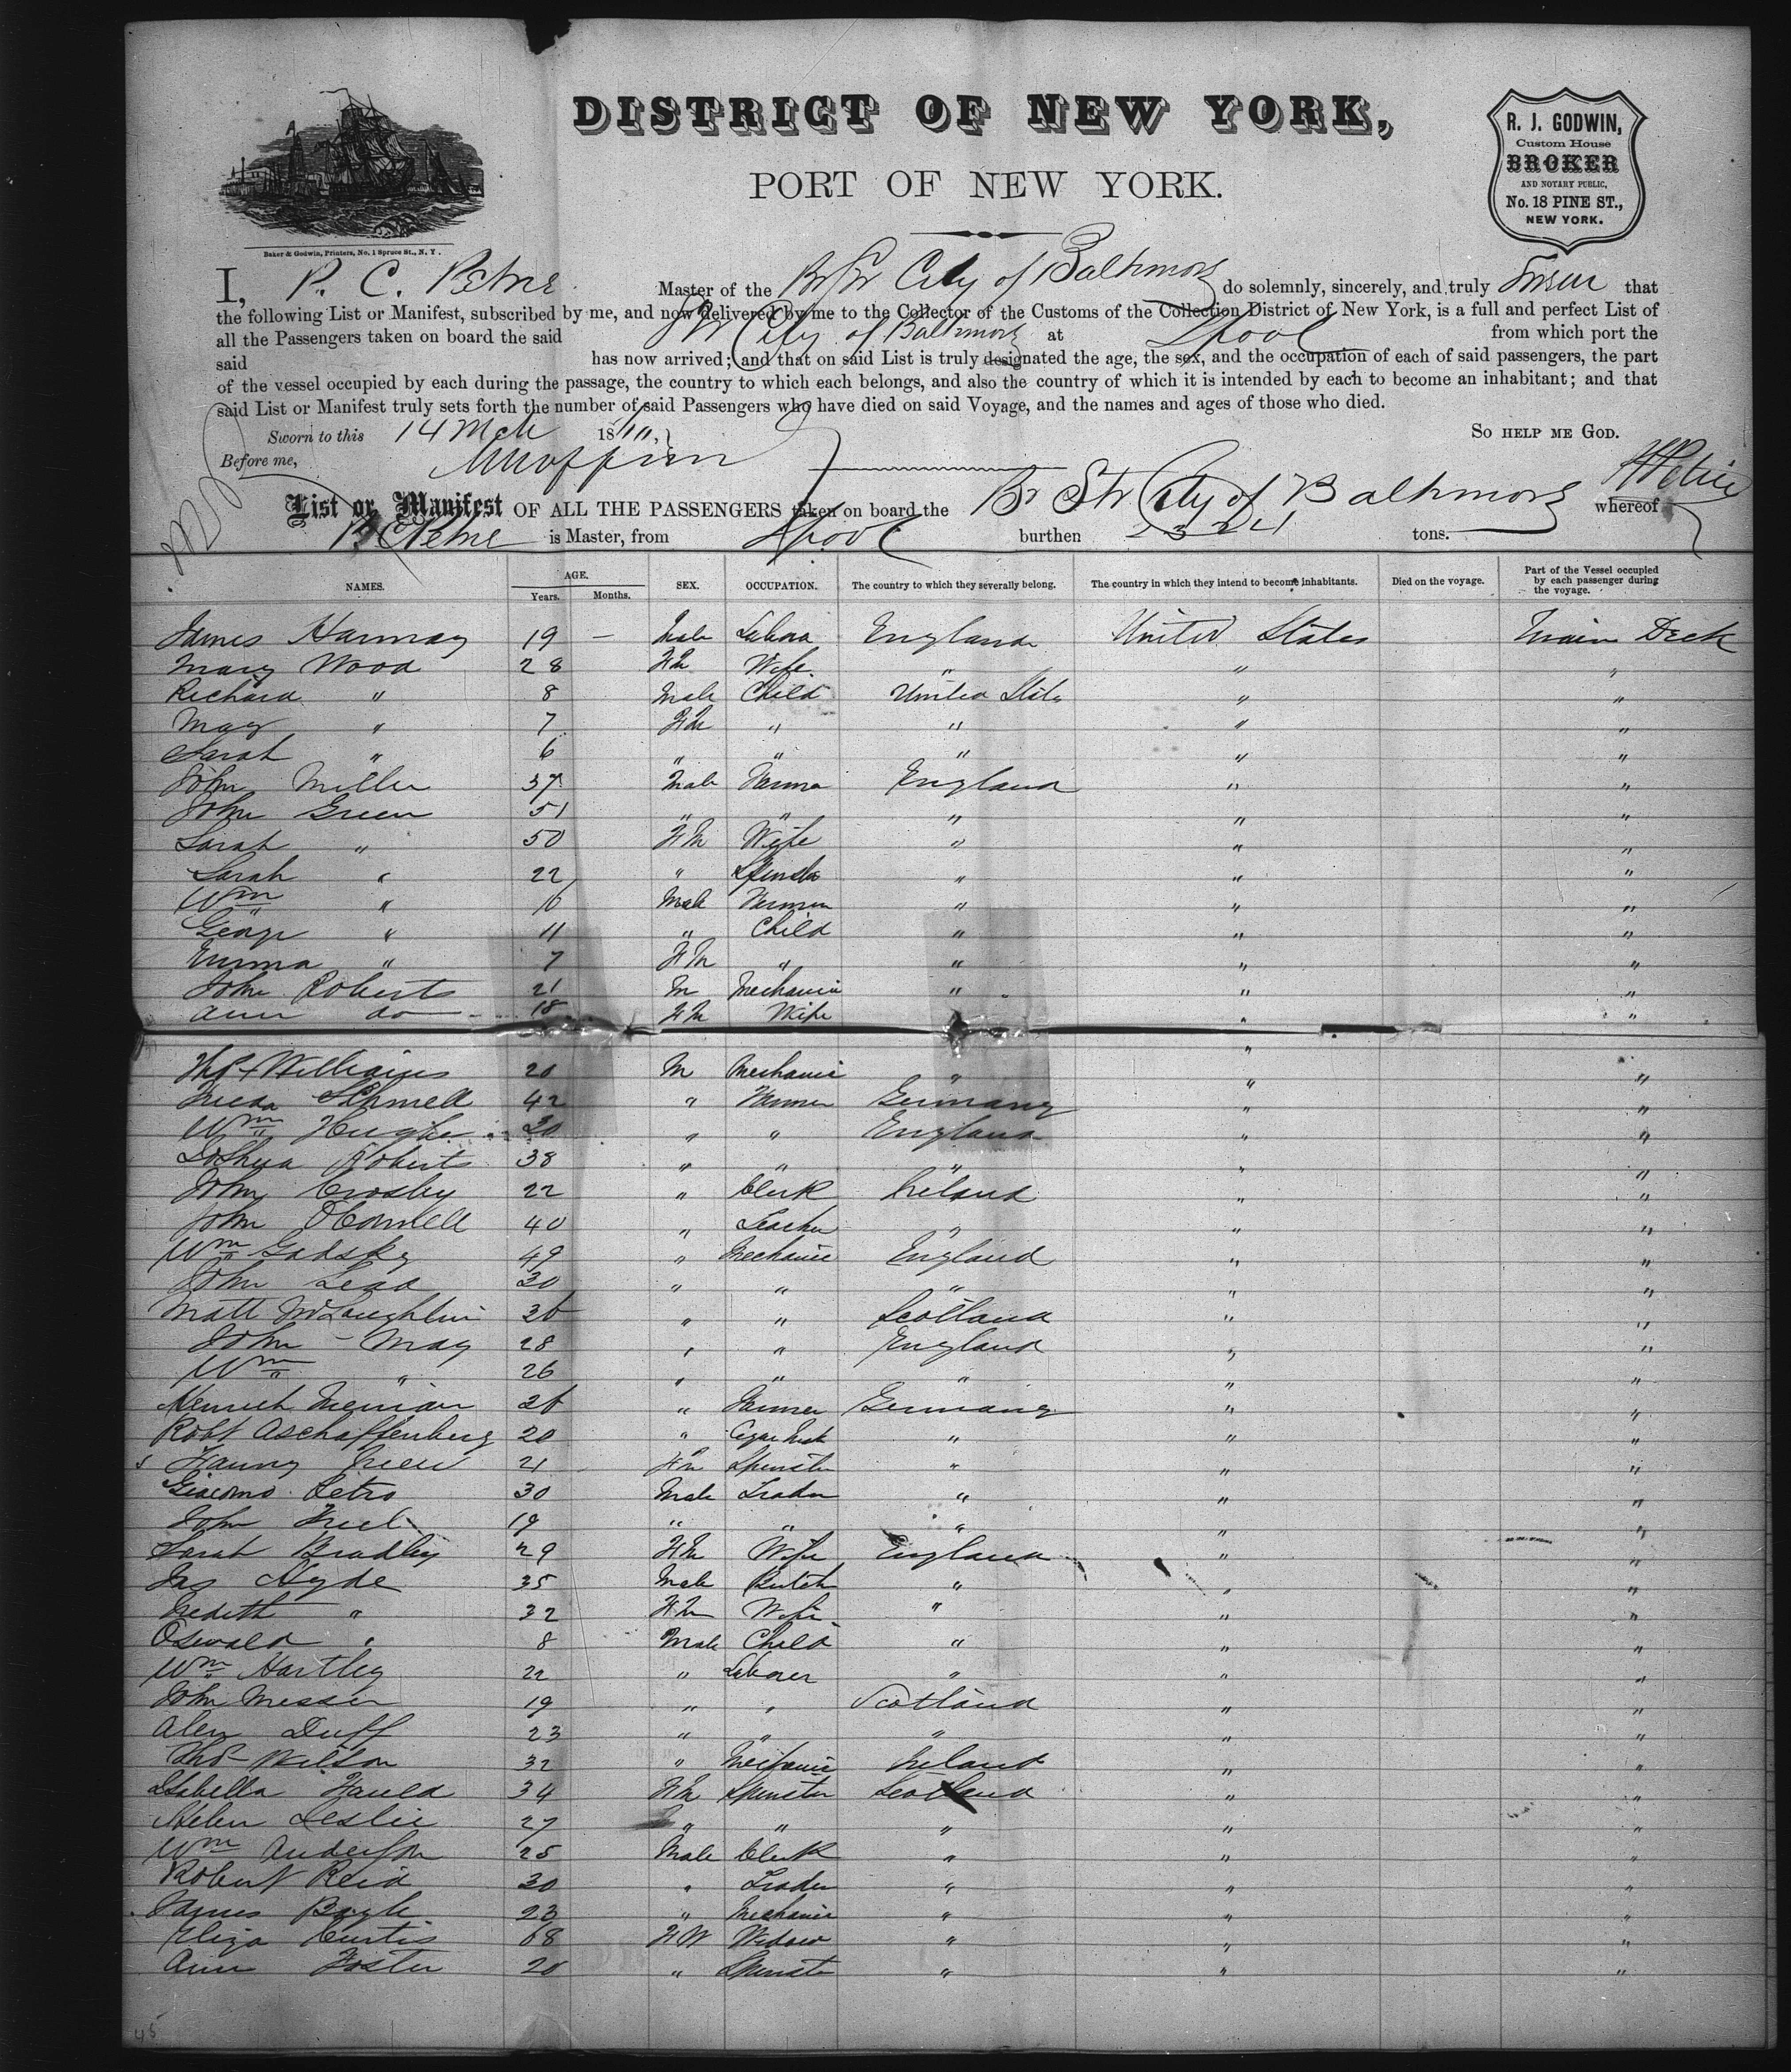 DISTRICT OF NEW YORK,
PORT OF NEW YORK.
R. J. GODWIN,
Custom House
BROKER
AND NOTARY PUBLIC,
No. 18 PINE ST.,
NEW YORK.
Baker & Godwin, Printers, No. 1 Spruce St., N. Y.
I, P. C. Petrie Master of the Br Str City of Baltimore do solemnly, sincerely, and truly swear that
the following List or Manifest, subscribed by me, and now delivered by me to the Collector of the Customs of the Collection District of New York, is a full and perfect List of
all the Passengers taken on board the said Str City of Baltimore at Lpool from which port the
said has now arrived; and that on said List is truly designated the age, the sex, and the occupation of each of said passengers, the part
of the vessel occupied by each during the passage, the country to which each belongs, and also the country of which it is intended by each to become an inhabitant; and that
said List or Manifest truly sets forth the number of said Passengers who have died on said Voyage, and the names and ages of those who died.
Sworn to this 14 Mch 18 SO HELP ME GOD.
Before me,
List or Manifest OF ALL THE PASSENGERS taken on board the Br Str City of Baltimore whereof
P C Petrie is Master, from Lpool burthen 2324 tons.
NAMES. AGE. Years. Months. SEX. OCCUPATION. The country to which they severally belong. The country in which they intend to become inhabitants. Died on the voyage. Part of the Vessel occupied by each passenger during the voyage.
James 19 — Male Labor England United States Main Deck
Mary Wood 28 FM Wife " " "
Richard " 8 Male Child United State " "
May " 7 FM " " " "
Sarah " 6 " " " " "
John Miller 37 Male Farmer England " "
John Green 51 " " " " "
Sarah " 50 FM Wife " " "
Sarah " 22 " Spinster " " "
Wm " 16 Male Farmer " " "
George " 11 " Child " " "
Emma " 7 FM " " " "
John Roberts 21 M Mechanic " " "
Ann do 18 FM Wife " "
Thos Williams 20 M Mechanic " " "
42 " Farmer Germany " "
Wm Hughes 20 " " England " "
Joshua Roberts 38 " " " " "
John Crosby 22 " Clerk Ireland " "
John OConnell 40 " Teacher " " "
Wm Gadsky 49 " Mechanic England " "
John Lead 30 " " " " "
Matt McLaughlin 36 " " Scotland " "
John May 28 " " England " "
Wm " 26 " " " " "
Henrich 26 " Farmer Germany " "
Robt Aschaffenberg 20 " " " "
Fanny 21 FM Spinster " " "
Giacomo Petro 30 Male Trader " " "
John 19 " " " " "
Sarah Bradley 29 FM Wife England " "
Jas Hyde 35 Male Butch " " "
" 32 FM Wife " " "
Oswald " 8 Male Child " " "
Wm Hartley 22 " Laborer " " "
John Messer 19 " " Scotland " "
Alex Duff 23 " " " " "
Thos Wilson 32 " Mechanic Ireland " "
Isabella Fauld 34 FM Spinster Scotland " "
Helen Leslie 27 " " " " "
Wm Anderson 25 Male Clerk " " "
Robert Reid 30 " Trader " " "
James Boyle 23 " Mechanic " " "
Eliza Curtis 68 FM Widow " " "
Ann Foster 20 " Spinster " " "
45